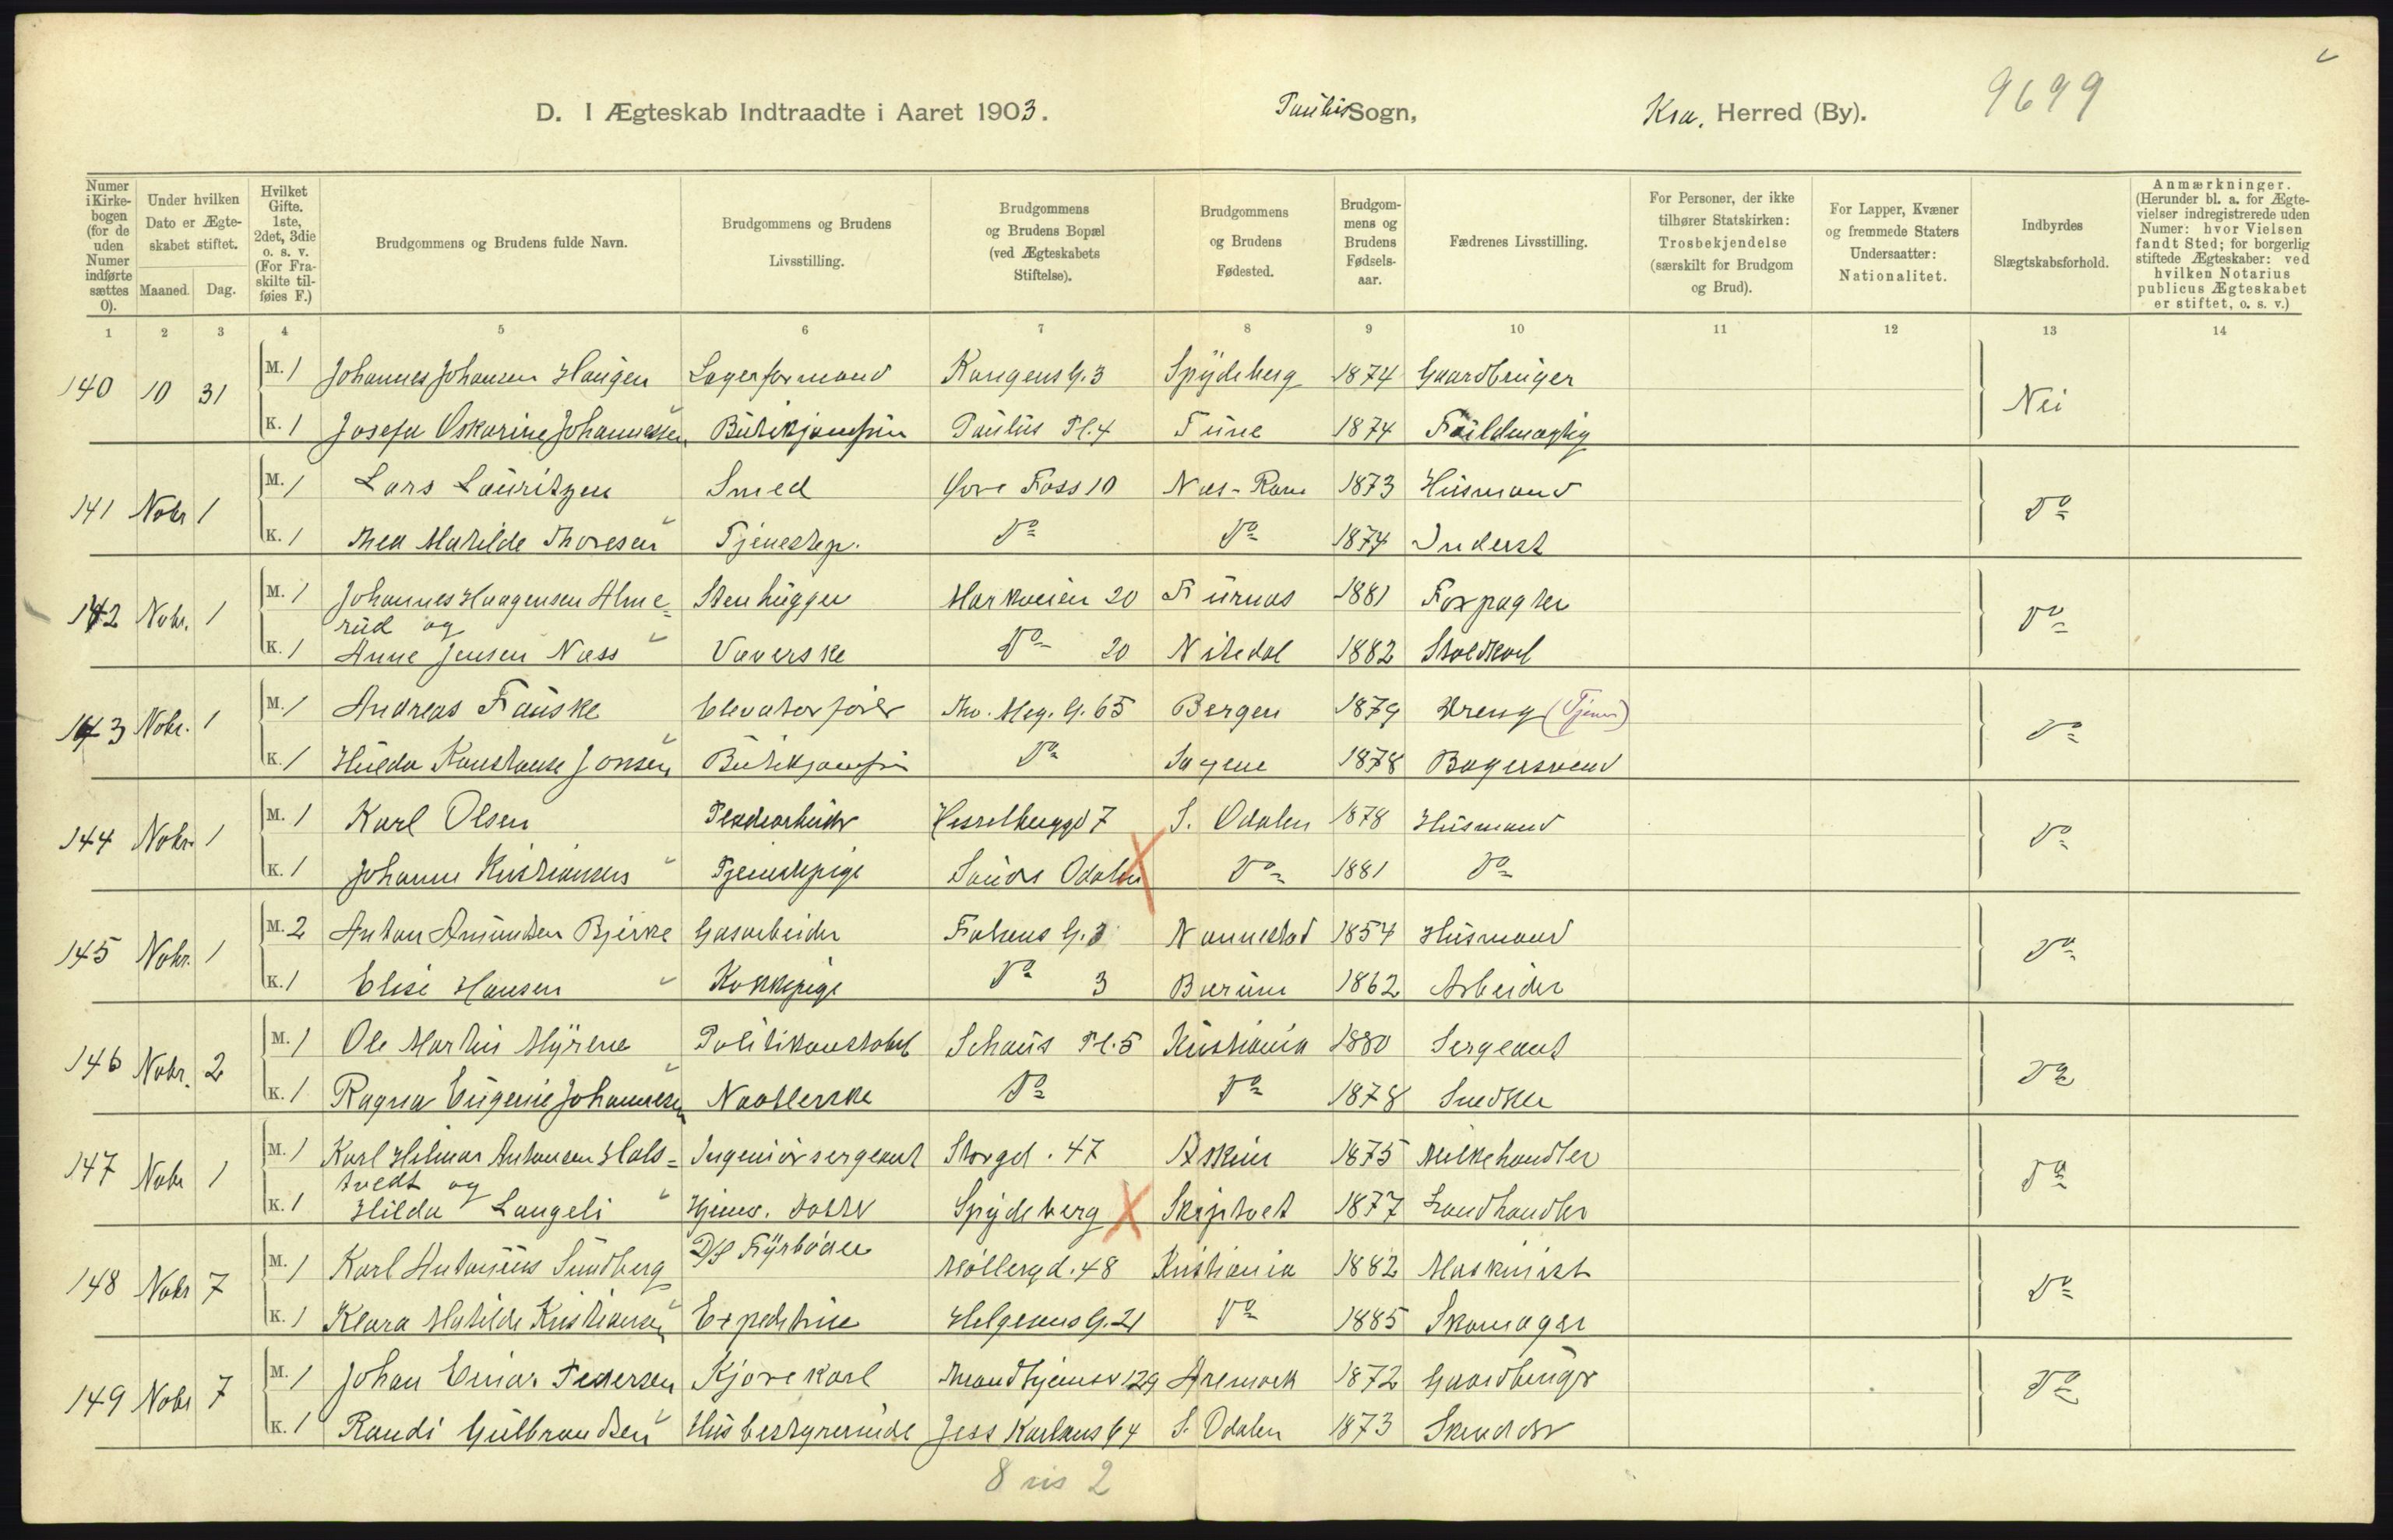 9699
D. I Ægteskab Indtraadte i Aaret 1903. Paulus Sogn, Kra. Herred (By).
Numer i Kirkebogen (for de uden Numer indførte sættes 0).
Under hvilken Dato er Ægteskabet stiftet.
Maaned. Dag.
Hvilket Gifte. 1ste, 2det, 3die o. s. v. (For Fraskilte tilføies F.)
Brudgommens og Brudens fulde Navn.
Brudgommens og Brudens Livsstilling.
Brudgommens og Brudens Bopæl (ved Ægteskabets Stiftelse).
Brudgommens og Brudens Fødested.
Brudgommens og Brudens Fødselsaar.
Fædrenes Livsstilling.
For Personer, der ikke tilhører Statskirken: Trosbekjendelse (særskilt for Brudgom og Brud).
For Lapper, Kvæner og fremmede Staters Undersaatter: Nationalitet.
Indbyrdes Slægtskabsforhold.
Anmærkninger. (Herunder bl. a. for Ægtevielser indregistrerede uden Numer: hvor Vielsen fandt Sted; for borgerlig stiftede Ægteskaber: ved hvilken Notarius publicus Ægteskabet er stiftet, o. s. v.)
1 2 3 4 5 6 7 8 9 10 11 12 13 14
140 10 31 M. 1 Johannes Johansen Haugen Lagerformand Kongens G. 3 Spydeberg 1874 Gaardbruger Nei
K. 1 Josefa Oskarine Johannessen Butikjomfru Paulus Pl. 4 Tune 1874 Fuldmægtig
141 Nobr 1 M. 1 Lars Lauritzen Smed Øvre Foss 10 Nes - Rom 1873 Husmand Do
K. 1 Thea Matilde Thoresen Tjenestep. Do Do 1874 Inderst
142 Nobr. 1 M. 1 Johannes Haagensen Alme= Stenhugger Markveien 20 Furnes 1881 Forpagter Do
rud og
K. 1 Anne Jensen Næss Væverske Do 20 Nitedal 1882 Staldkarl
143 Nobr. 1 M. 1 Andreas Fauske Elevatorfører Th. Mey. G. 65 Bergen 1879 Dreng (Tjener) Do
K. 1 Hulda Konstanse Jonsen Butikjomfru Do Sagene 1878 Bagersvend
144 Nobr. 1 M. 1 Karl Olsen Hesselberggd 7 S. Odalen 1878 Husmand Do
K. 1 Johanne Kristiansen Tjenestepige Søndre Odalen Do 1881 Do
145 Nobr. 1 M. 2 Anton Amundsen Bjerke Gasarbeider Falsens G. 3 Nannestad 1854 Husmand Do
K. 1 Elise Hansen Kokkepige Do 3 Bærum 1862 Arbeider
146 Nobr. 2 M. 1 Ole Martin Myrene Politikonstabel Schous Pl. 5 Kristiania 1880 Sergeant Do
K. 1 Ragna Eugenie Johannesen Naatlerske Do Do 1878 Snedker
147 Nobr 1 M. 1 Karl Hilmar Antonsen Hals= Ingeniørsergeant Storgd. 47 Askim 1875 Melkehandler Do
tvedt og
K. 1 Hilda Langeli Hjemv. datter Spydeberg Skiptvet 1877 Landhandler
148 Nobr 7 M. 1 Karl Antonius Sundberg D/S Fyrbøder Møllergd. 48 Kristiania 1882 Maskinist Do
K. 1 Klara Matilde Kristiansen Expeditrice Helgesens G. 21 Do 1885 Skomager
149 Nobr 7 M. 1 Johan Einar Pedersen Kjørekarl Trondhjemsv 129 Aremark 1872 Gaardbruger Do
K. 1 Randi Gulbrandsen Husbestyrerinde Jess Karlsens 64 S. Odalen 1873 Skrædder
8 2